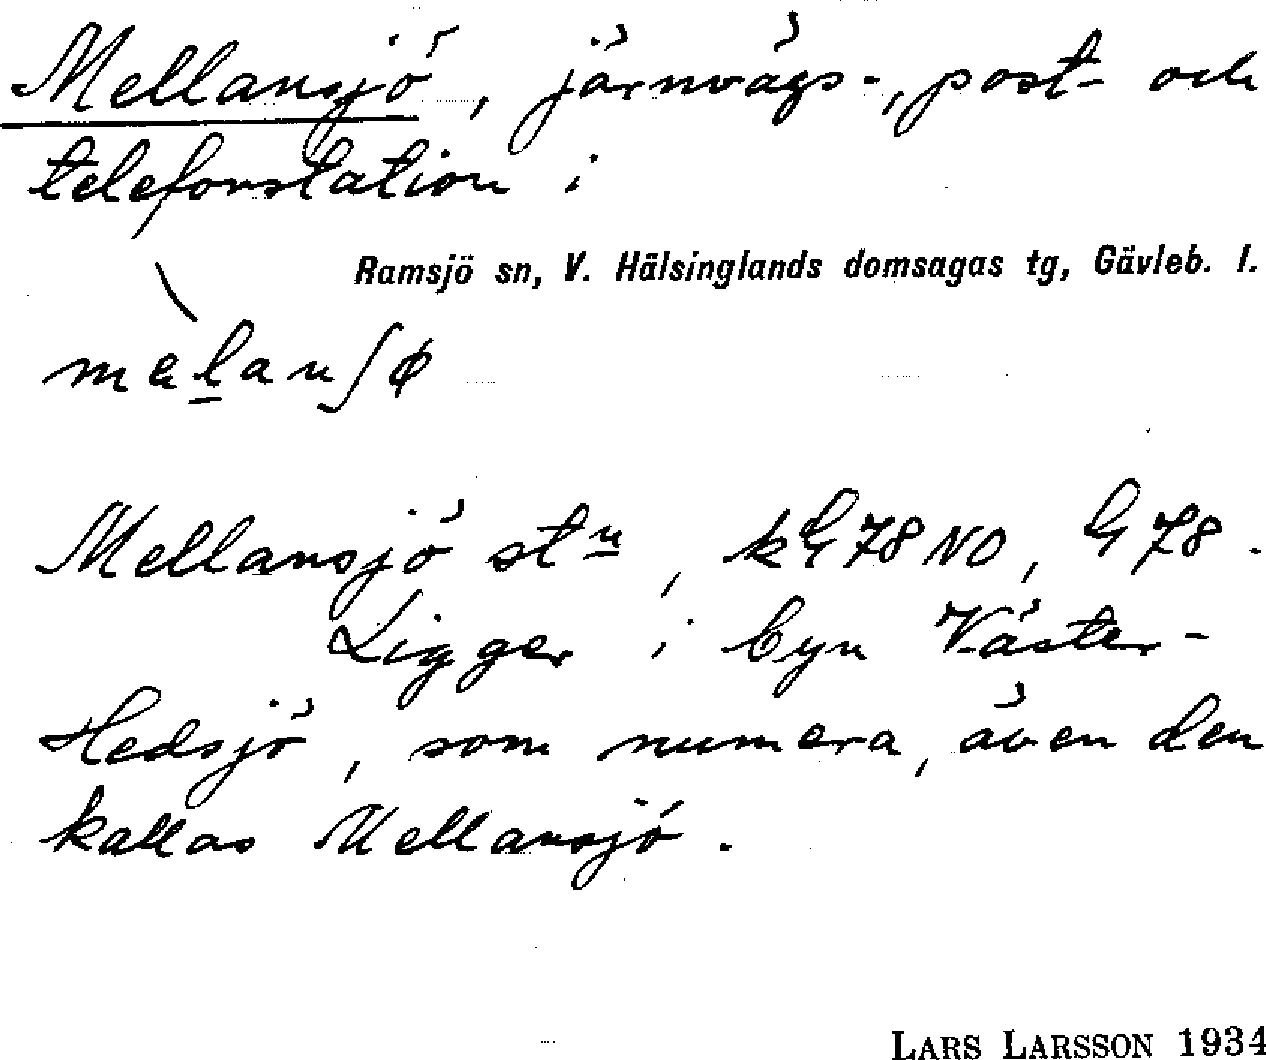 Mellansjö, järnvägs-, post- och
telefonstation i
Ramsjö sn, V. Hälsinglands domsagas tg, Gävleb. l.
Mellansjö stn, kG78NO, G78.
Ligger i byn Väster-
Hedsjö, som numera, även den
kallas Mellansjö.
LARS LARSSON 1934